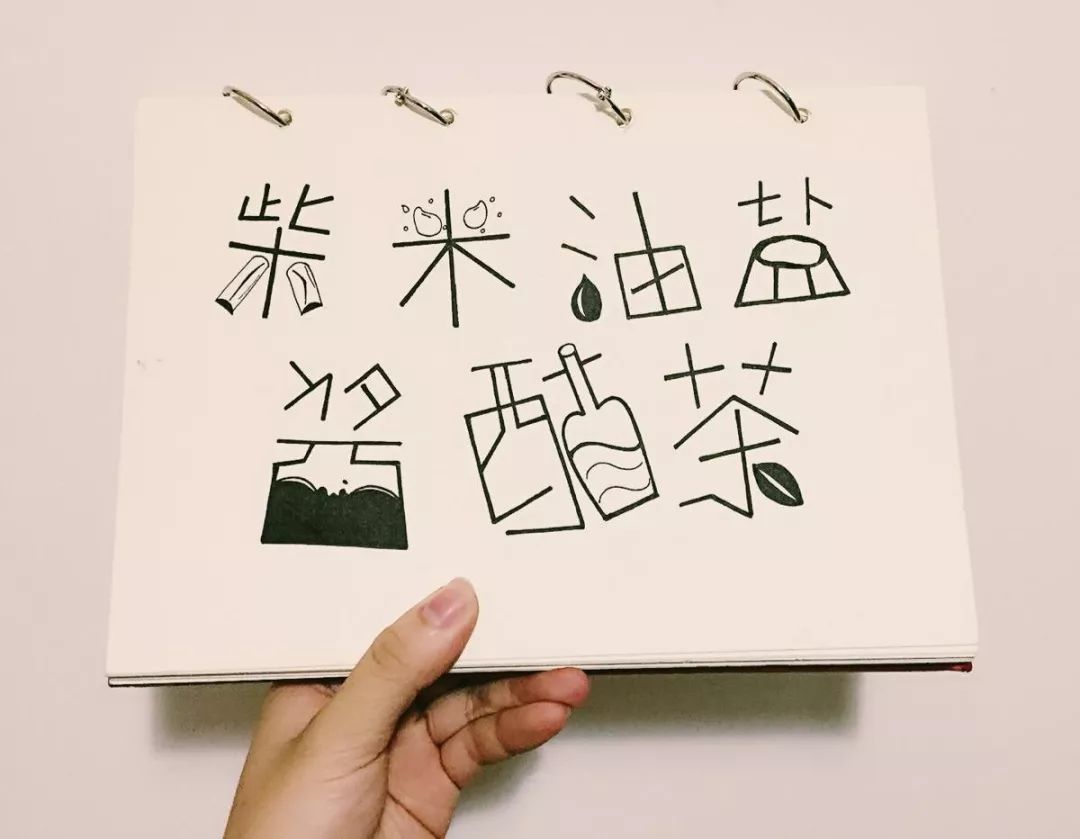 柴米油盐
酱醋茶